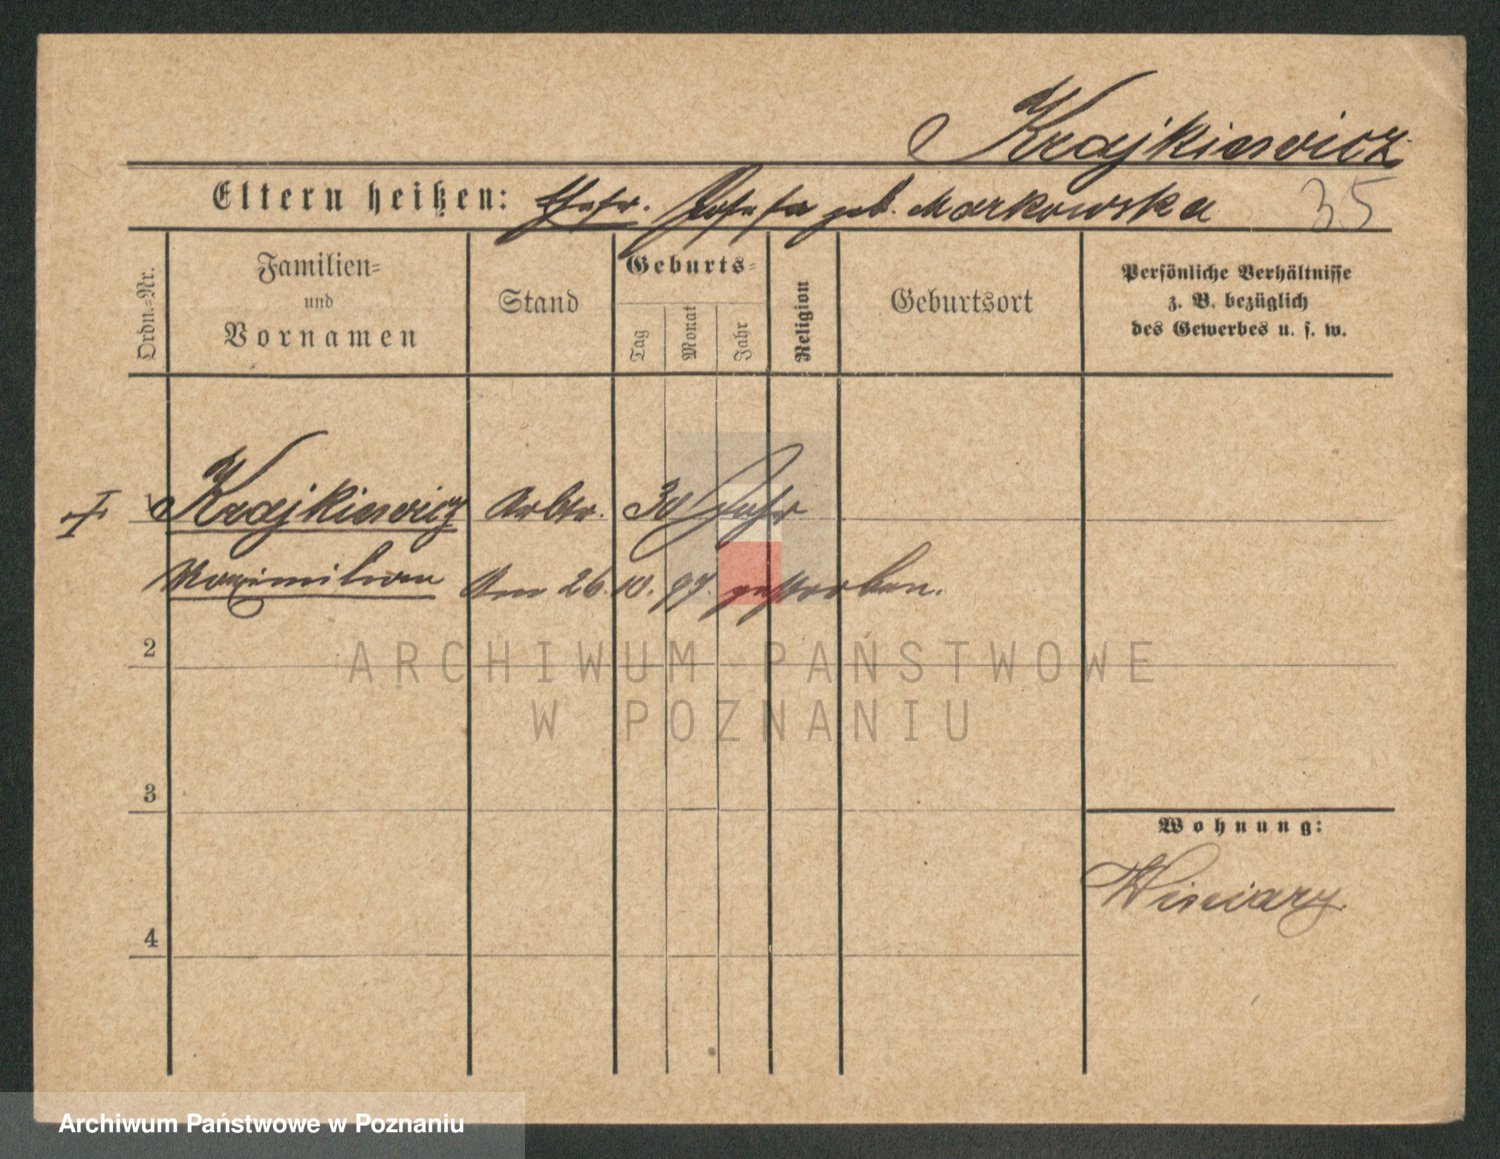 Krajkiewicz
Eltern heißen: Ehefr. Josefa geb. Markowska 35
Ordn.=Nr.
Familien=
und
Vornamen
Stand
Geburts=
Tag
Monat
Jahr
Religion
Geburtsort
Persönliche Verhältnisse
z. B. bezüglich
des Gewerbes u. s. w.
Krajkiewicz Arbtr. 30 Jahr
Maximilian Am 26. 10. 97. gestorben.
2
ARCHIWUM PAŃSTWOWE
W POZNANIU
3
Wohnung:
Winiary
4
Archiwum Państwowe w Poznaniu